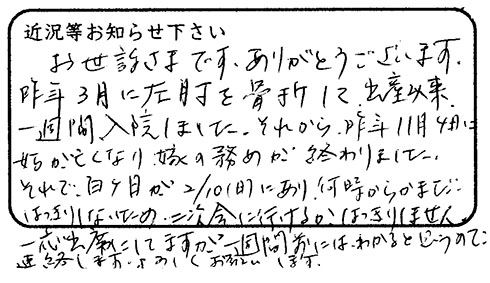 近況等お知らせ下さい
お世話さまです、ありがとうございます。
昨年3月に左肘を骨折して出産以来
一週間入院しました。それから、昨年11月4日に
姑が亡くなり、嫁の務めが終わりました。
それで、百ケ日が2/10(日)にあり、何時からかまだ
はっきりしないため、二次会に行けるかはっきりしません。
一応出席にしてますが一週間前には、わかると思うので、
連絡します。よろしくお願いします。